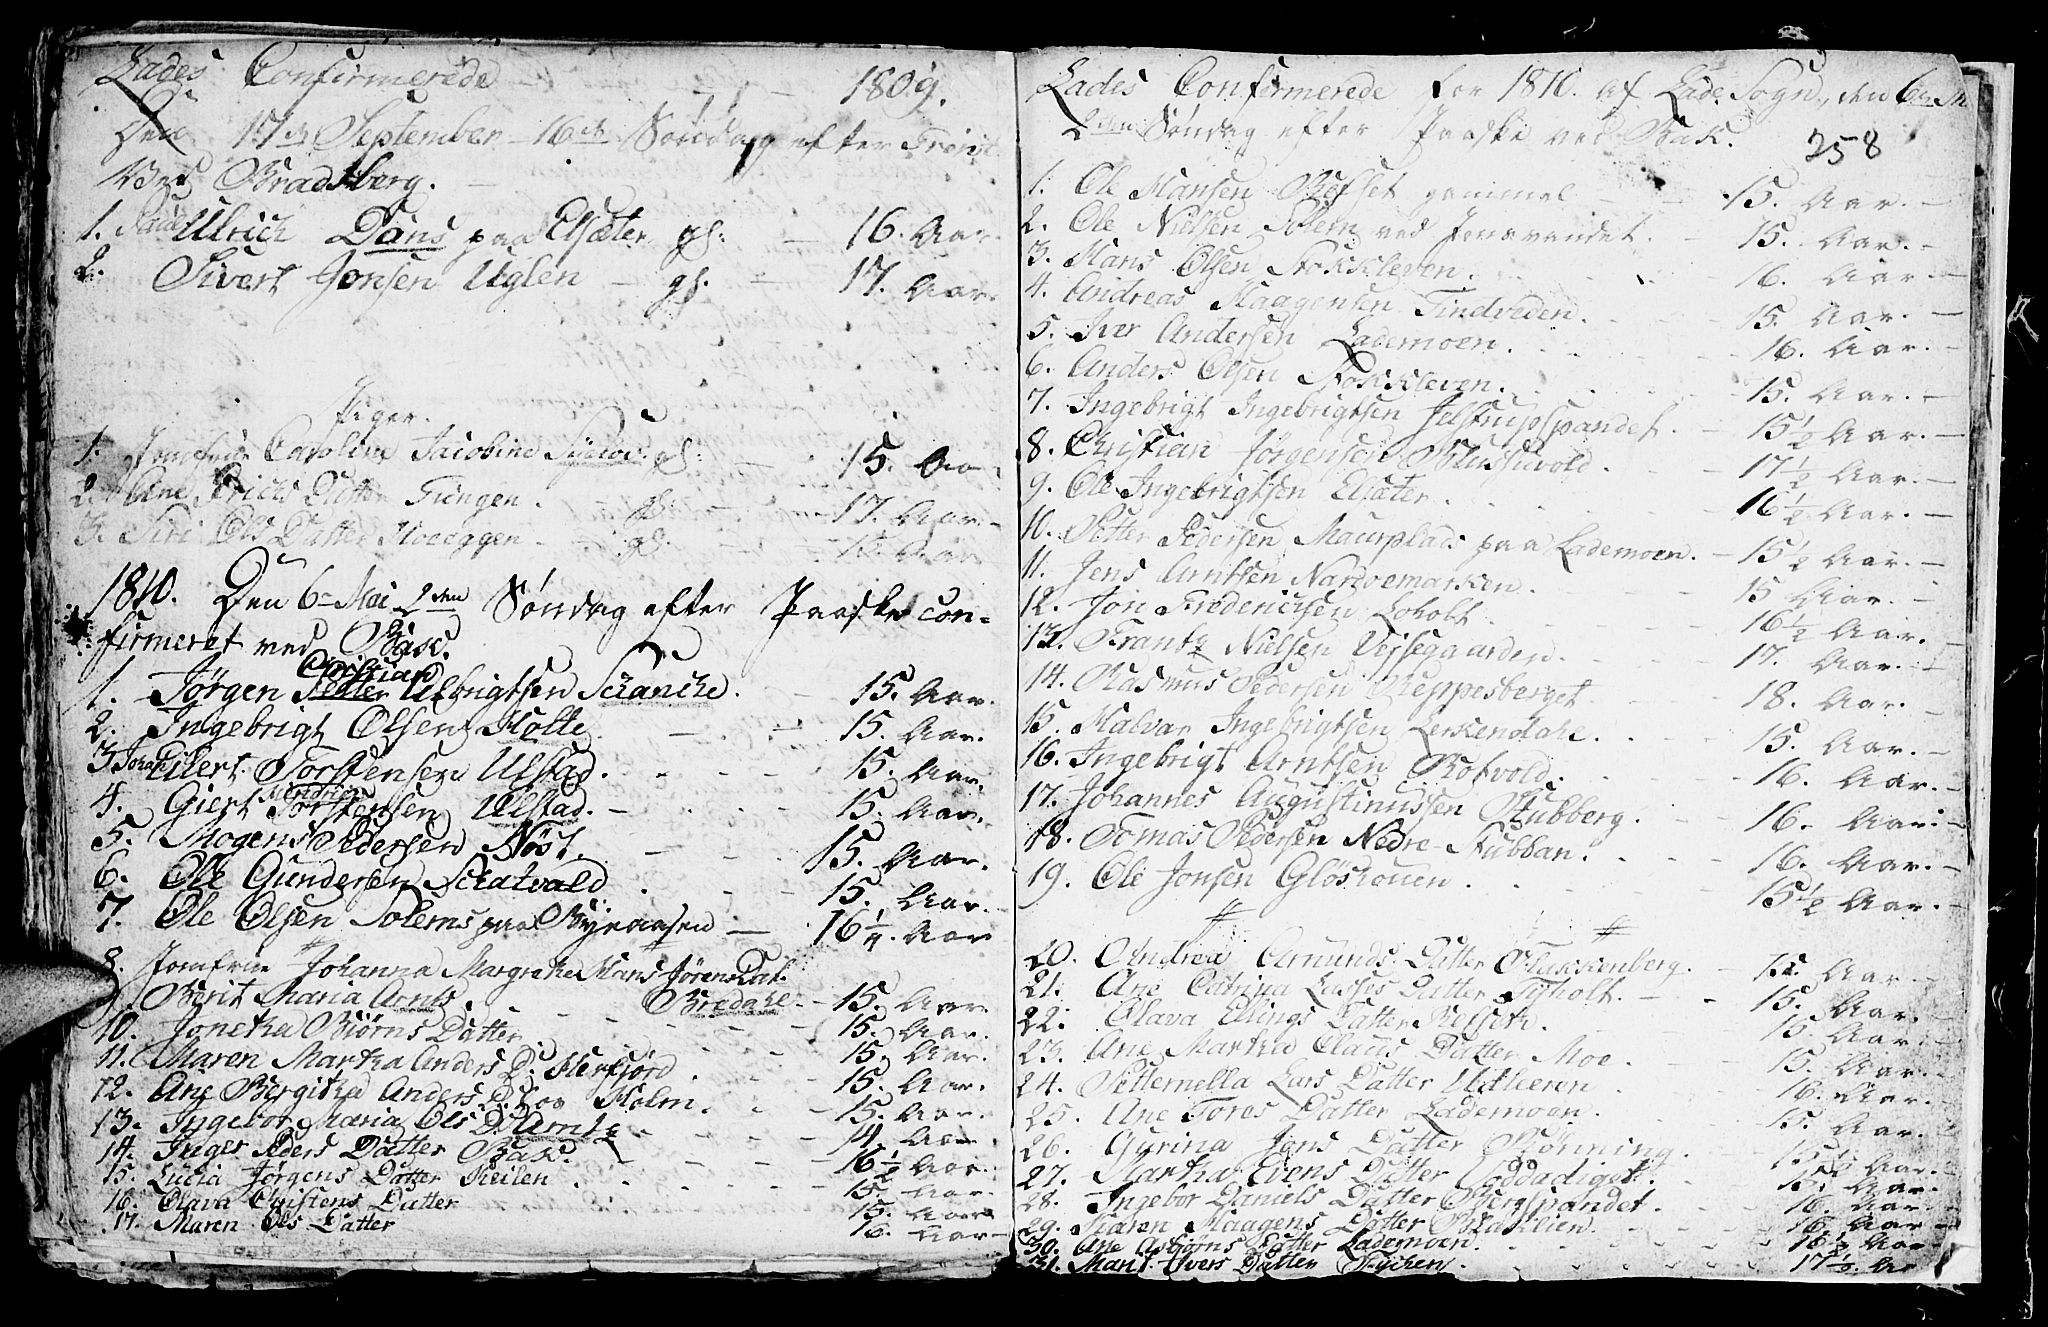 Lades Confirmerede 1809.
Den 17de September 16de Søndag efter Trinit
Ved Bradsberg.
1. Ulrich Dons paa Elsæter gl: 16. Aar.
2. Sivert Jonsen Uglen gl. 17. Aar.
Piger.
1. Jomfrue Caroline Jacobine gl: 15. Aar
2. Ane Erichs Datter Tungen. gl. 17. Aar.
3. Siri Ols Datter gl. Aar
1810. Den 6te Mai 2den Søndag efter Paaske con-
firmeret ved Bak.
Christian
1. Jørgen Petter Ulbrigtsen Schanche. 15. Aar.
2. Ingebrigt Olsen Holte. 15. Aar.
3. Johan Eilert Torstensen Ulstad. 15. Aar.
Hendrich
4. Giert Torstensen Ulstad. 15. Aar.
5. Mogens Pedersen Nøst. 15. Aar.
6. Ole Gundersen Schatvald. 15. Aar.
7. Ole Olsen Solems paa Byeaasen 16 1/4. Aar
8. Jomfrue Johanna Margretha Hans Jørens Dat.
Bredahl 15. Aar.
9. Berit Maria Arnts. 15. Aar.
10. Jonetha Biørns Datter. 15. Aar.
11. Maren Martha Anders D. Herfjord. 15. Aar.
12. Ane Bergitha Anders D. Holm. 15. Aar.
13. Ingebor Maria Ols D. 14. Aar.
14. Inger Peders Datter Bak. 16 1/2 Aar.
15. Lucia Jørgens Datter Keilen. 15. Aar.
16. Olava Christens Datter 15. Aar
17. Maren Ols Datter 16. Aar
Lades Confirmerede for 1810. af Lade Sogn, den 6te
2den Søndag efter Paaske ved Bak.
258
1. Ole Hansen Refset gammel 15. Aar.
2. Ole Nielsen Solem ved Jonsvandet. 15. Aar.
3. Hans Olsen Stokkleven. 16. Aar.
4. Andreas Haagensen Tindveden. 15. Aar.
5. Iver Andersen Lademoen. 16. Aar.
6. Anders Olsen Stokkleven. 15. Aar.
7. Ingebrigt Ingebrigtsen Jelstrupspandet. 15 1/2 Aar.
8. Christian Jørgensen 17 1/2 Aar.
9. Ole Ingebrigtsen Elsæter. 16 1/2 Aar.
10. Petter Pedersen Maurplads paa Lademoen. 15 1/2 Aar.
11. Jens Arntsen Nardoemarken. 15 Aar.
12. Jon Frederichsen Loholt. 16 1/2 Aar.
13. Frantz Nielsen Veisegaarden. 17. Aar.
14. Rasmus Pedersen Reppesberget. 18. Aar.
15. Halvar Ingebrigtsen Lerkendahl. 15. Aar.
16. Ingebrigt Arntsen Rotvold. 16. Aar.
17. Johannes Augustinussen Stubberg. 16. Aar.
18. Tomas Pedersen Nedre Stubban. 16. Aar.
19. Ole Jonsen Gløshouen. 15 1/2 Aar.
20. Andrea Amunds Datter Blussenberg. 15. Aar.
21. Ane Catrina Lasses Datter Tyholt. 15. Aar.
22. Olava Elings Datter 15 Aar.
23. Ane Martha Claus Datter Moe. 15. Aar.
24. Pettemella Lars Datter 16. Aar.
25. Ane Tores Datter Lademoen. 15. Aar.
26. Gurina Jens Datter Rønning. 15 1/2 Aar.
27. Martha Evens Datter Loddadiget. 15. Aar.
28. Ingebor Daniels Datter Bergspandet. 16. Aar.
29. Karen Haagens Datter Baklien. 16. Aar
30. Ane Asbiørns Datter Lademoen. 16 1/2 Aar
31. Marit Ivers Datter 17 1/2. Aar